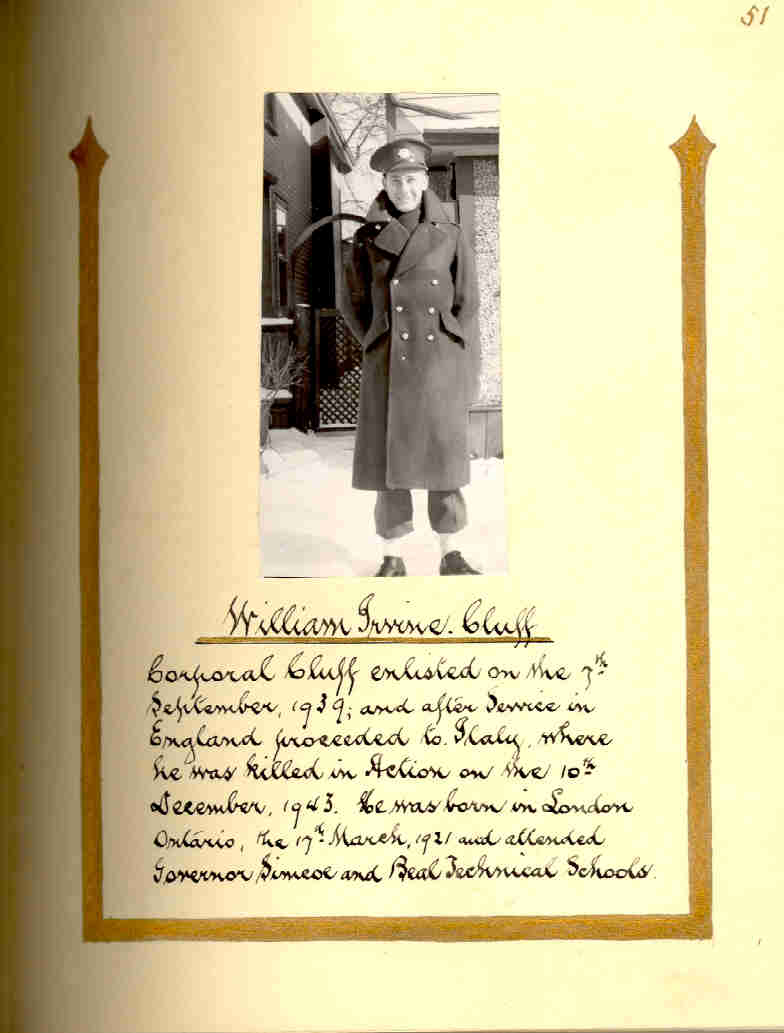 51
William Irvine. Cluff
Corporal Cluff enlisted on the 7th
September, 1939; and after Service in
England proceeded to. Italy, where
he was killed in Action on the 10th
December, 1943. He was born in London
Ontario, the 17th March, 1921 and attended
Governor Simcoe and Beal Technical Schools.